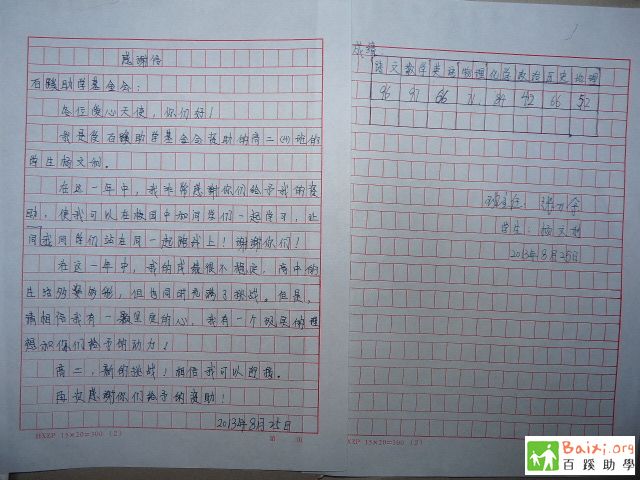 感谢信
百蹊助学基金会:
各位爱心天使,你们好!
我是受百蹊助学基金会资助的高二(四)班的
学生杨文
在这一年中,我非常感谢你们给予我的资
助,使我可以在校园中和同学们一起学习,让
我同学们站在同一起跑线上!谢谢你们!
在这一年中,我的成绩很不稳定,高中的
生活,但也同时充满了挑战。但是,
请相信我有一颗坚定的心,我有一个坚定的理
想和你们给予的动力!
高二,新的挑战!相信我可以迎接。
再次感谢你们给予的资助!
2013年8月25日
HXZP 15×20=300 (2) 第 页
成绩
语文 数学 英语 物理 化学 政治 历史 地理
96 97 66 84 42 66 52
班主任:
学生:杨文
2013年8月25日
HXZP 15×20=300 (2)
Baixi.org
百蹊助學